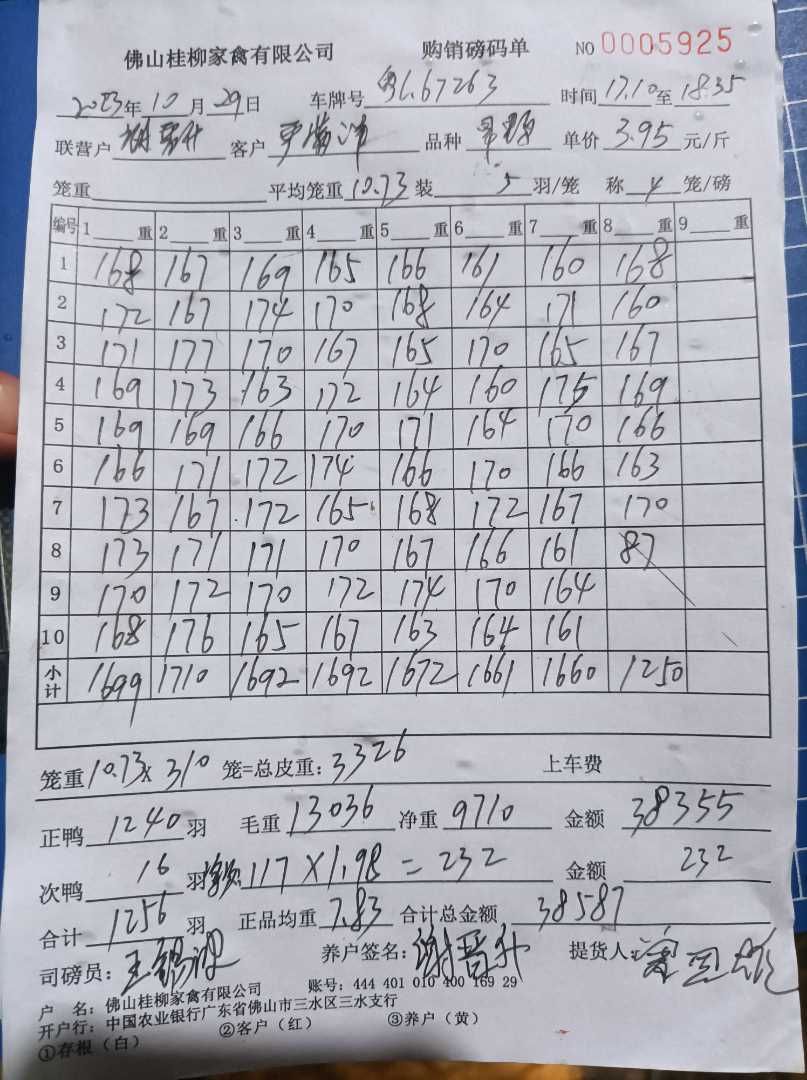 佛山桂柳家禽有限公司 购销磅码单 NO 0005925
2023年10月29日 车牌号 粤L67263 时间 17.10至18.35
联营户 客户 品种 单价 3.95 元/斤
笼重 平均笼重 10.73 装 5 羽/笼 称 4 笼/磅
编号 1 重 2 重 3 重 4 重 5 重 6 重 7 重 8 重 9 重
1 168 167 169 165 166 161 160 168
2 172 167 174 170 168 164 171 160
3 171 177 170 167 165 170 165 167
4 169 173 163 172 164 160 175 169
5 169 169 166 170 171 164 170 166
6 166 171 172 174 166 170 166 163
7 173 167 172 165 168 172 167 170
8 173 171 171 170 167 166 161 87
9 170 172 170 172 174 170 164
10 168 176 165 167 163 164 161
小计 1699 1710 1692 1692 1672 1661 1660 1250
笼重 10.73 x 310 笼=总皮重: 3326 上车费
正鸭 1240 羽 毛重 13036 净重 9710 金额 38355
次鸭 16 羽 117 X 1.98 = 232 金额 232
合计 1256 羽 正品均重 7.83 合计总金额 38587
司磅员: 王锡波 养户签名: 谢晋升 提货人:
户 名: 佛山桂柳家禽有限公司 账号: 444 401 010 400 169 29
开户行: 中国农业银行广东省佛山市三水区三水支行
①存根(白) ②客户(红) ③养户(黄)